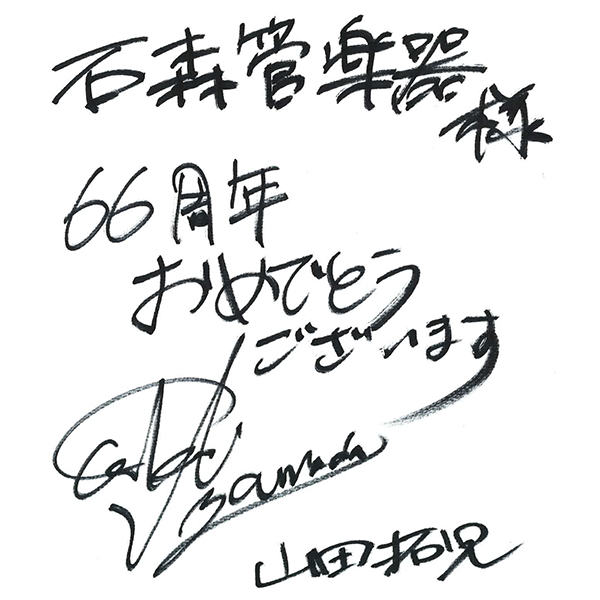 石森管楽器
様
66周年
おめでとう
ございます
山田拓児